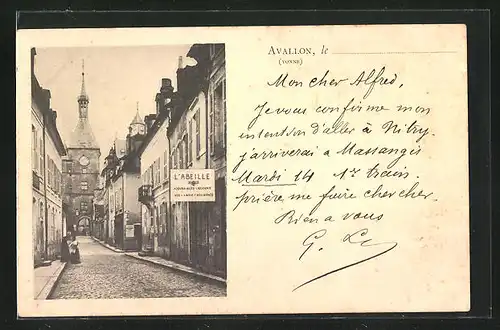 L'ABEILLE
AVALLON, le
(YONNE)
Mon cher Alfred,
Je vous confirme mon
intention d'aller à Nitry.
j'arriverai à Massangis
Mardi 14 1er train.
prière me faire chercher.
Rien à vous
G.